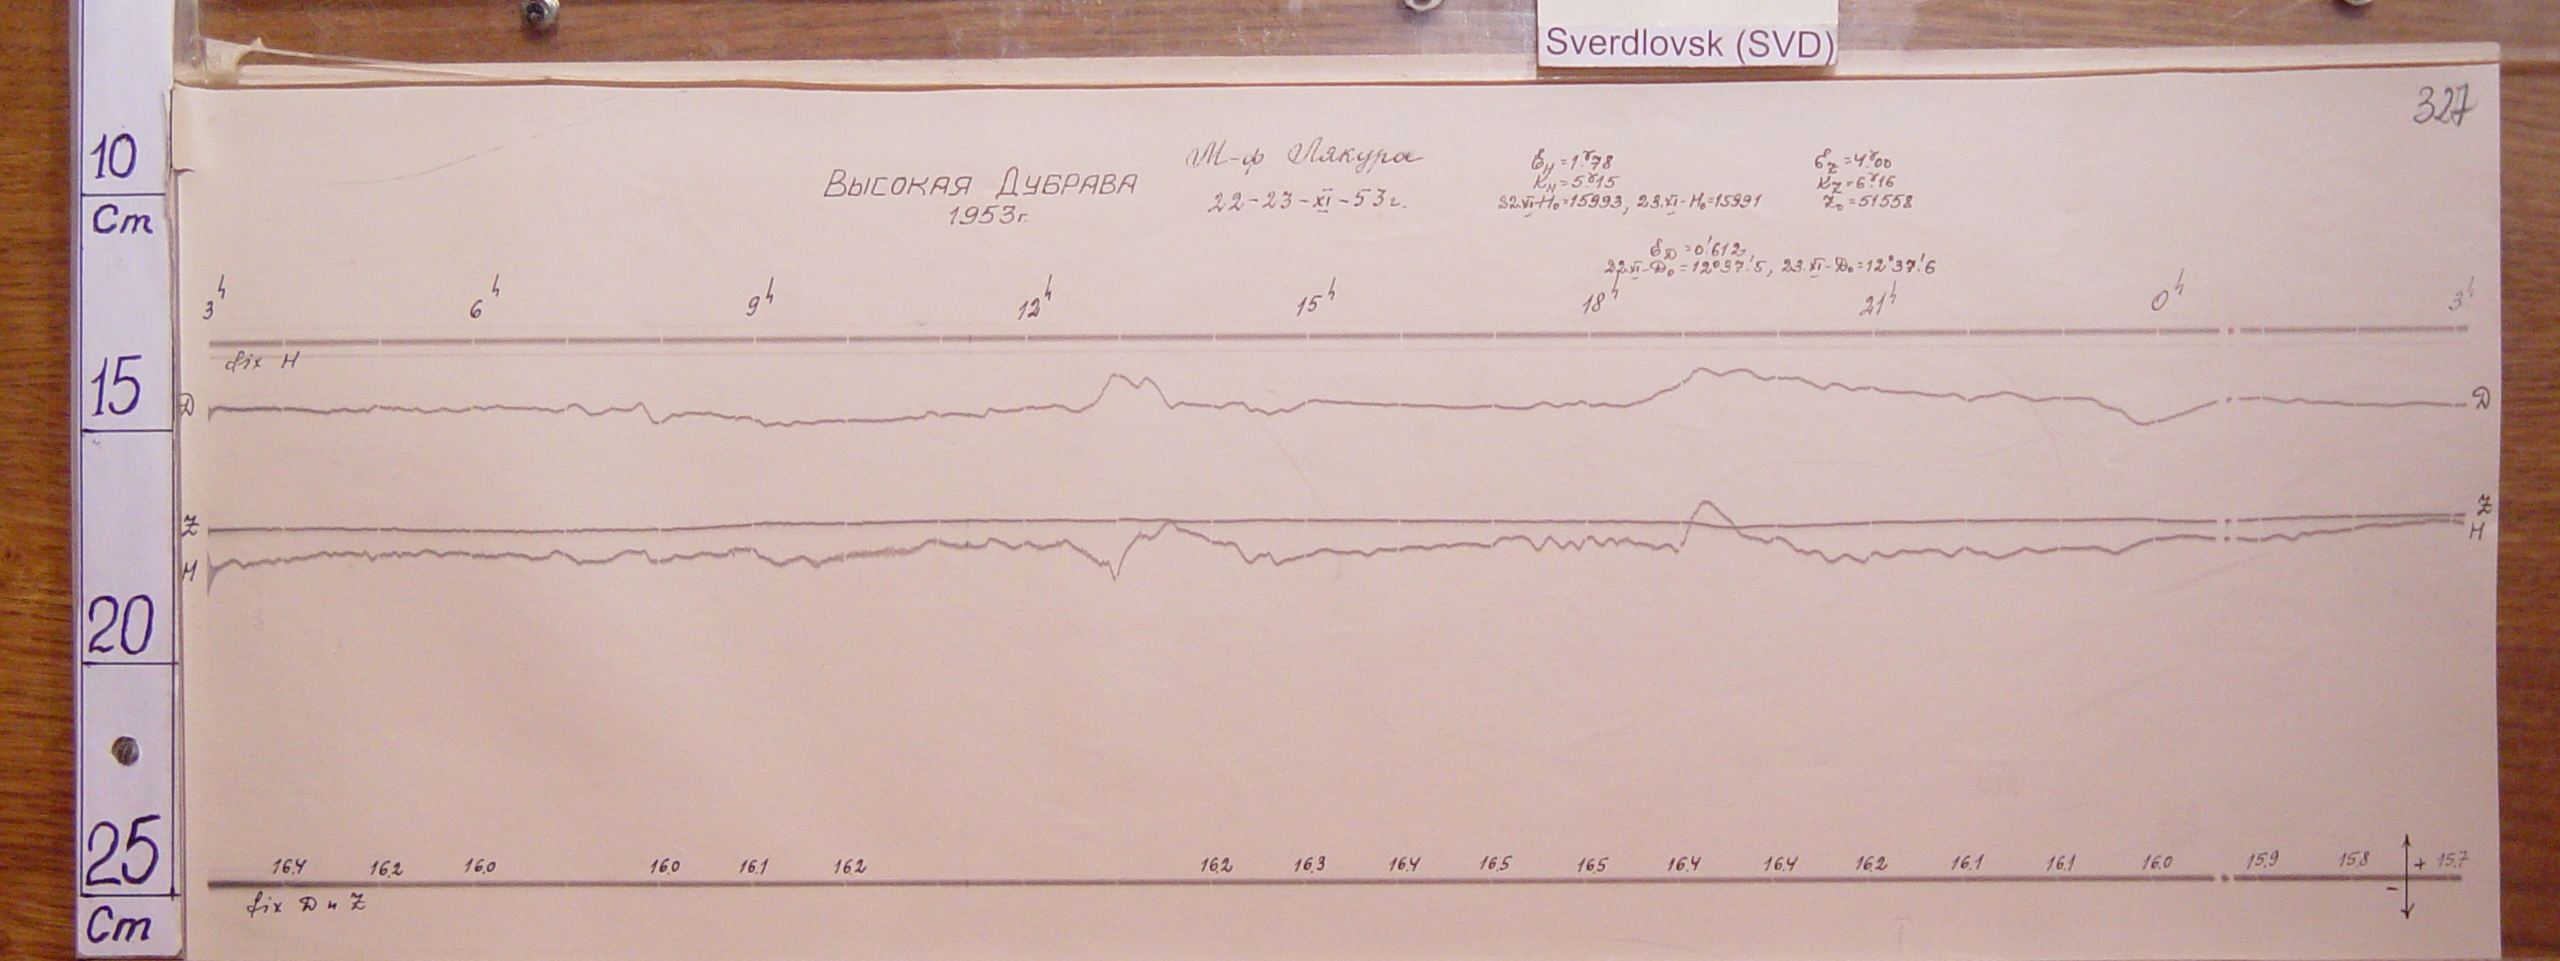 Sverdlovsk (SVD)
327
10
Cm
15
20
25
Cm
Высокая Дубрава
1953г.
М-ф Лякура
22-23-XI-53г.
εH = 1.γ78
KH = 5.γ15
22.XI-H₀=15993, 23.XI-H₀=15991
εZ = 4.γ00
KZ = 6.γ16
Z₀ = 51558
εD = 0.'612
22.XI-D₀=12°37.'5, 23.XI-D₀=12°37.'6
3h 6h 9h 12h 15h 18h 21h 0h 3h
fix H
D D
Z Z
H H
16.4 16.2 16.0 16.0 16.1 16.2 16.2 16.3 16.4 16.5 16.5 16.4 16.4 16.2 16.1 16.1 16.0 15.9 15.8 + 15.7
-
fix D и Z